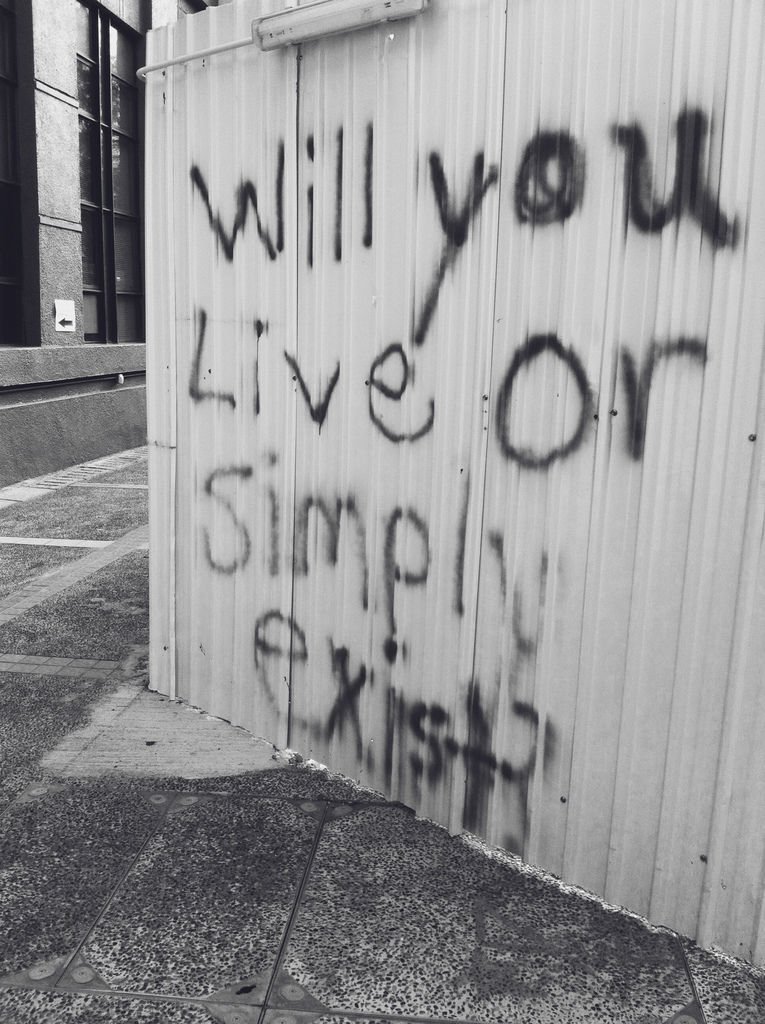 Will you
Live or
Simply
exist?